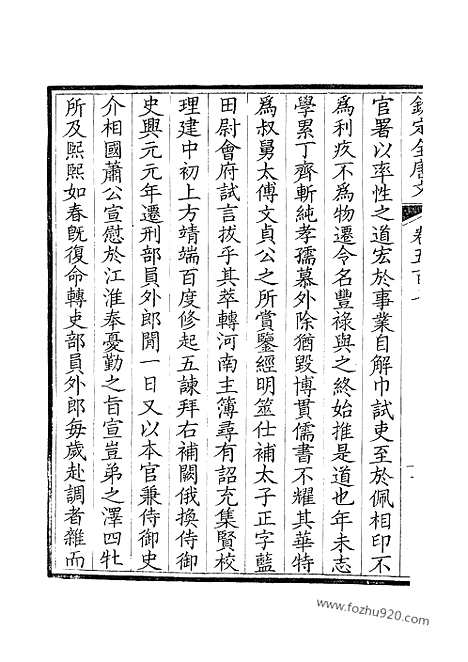 欽定全唐文　卷五百七
官署以率性之道宏於事業自解巾試吏至於佩相印不
爲利疚不爲物遷令名豐祿與之終始推是道也年未志
學累丁齊斬純孝孺慕外除猶毀博貫儒書不耀其華特
爲叔舅太傅文貞公之所賞鑒經明筮仕補太子正字藍
田尉會府試言拔乎其萃轉河南主簿尋有詔充集賢校
理建中初上方靖端百度修起五諫拜右補闕俄換侍御
史興元元年遷刑部員外郎閒一日又以本官兼侍御史
介相國蕭公宣慰於江淮奉憂勤之旨宣豈弟之澤四牡
所及熙熙如春旣復命轉吏部員外郎每歲赴調者雜而
www.fozhu920.com